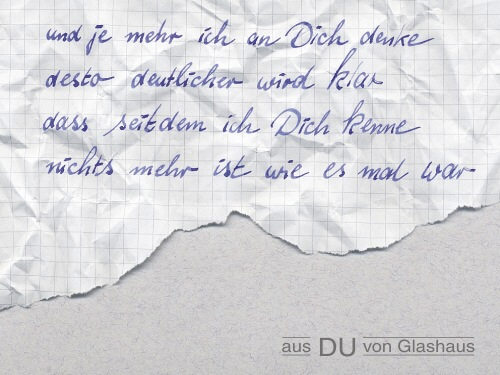 und je mehr ich an Dich denke
desto deutlicher wird klar
dass seitdem ich Dich kenne
nichts mehr ist wie es mal war
aus DU von Glashaus